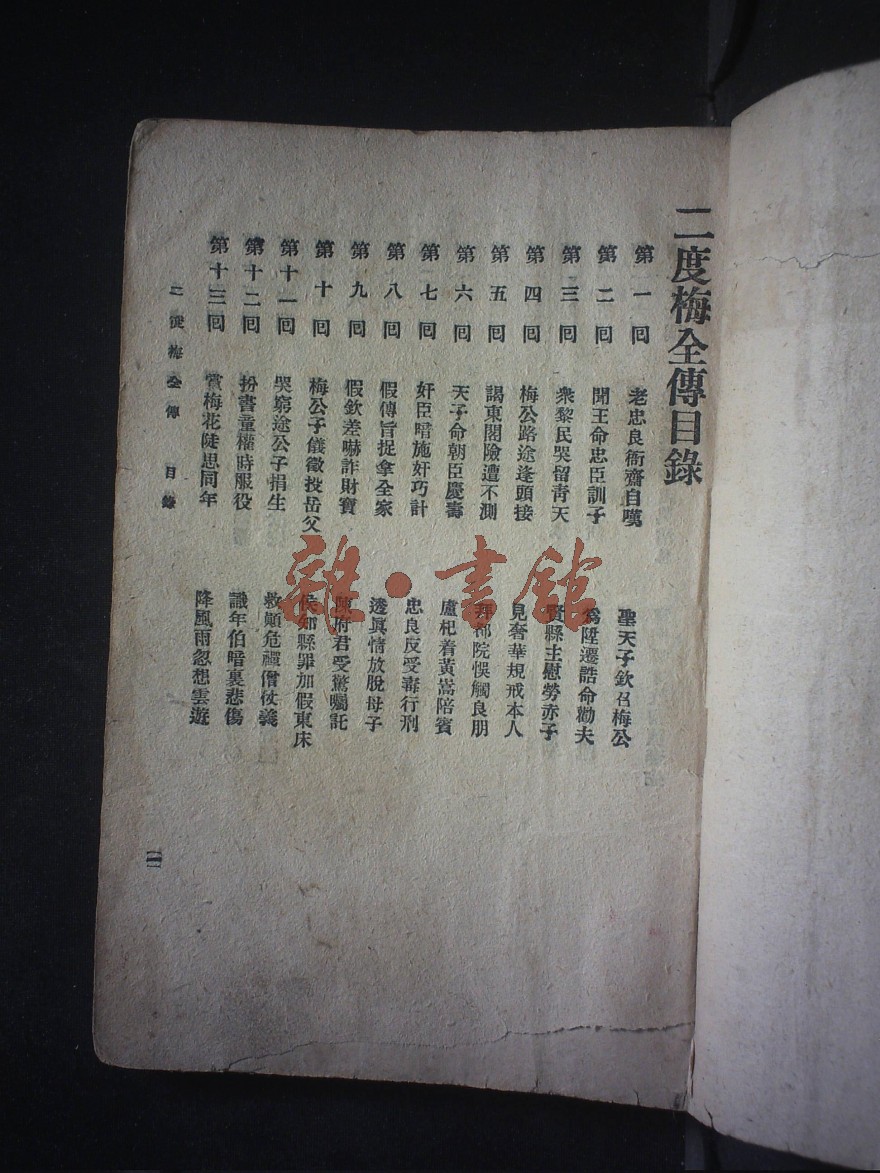 二度梅全傳目錄
第一回 老忠良衙齋自嘆 聖天子欽召梅公
第二回 聞王命忠臣訓子 爲陞遷誥命勸夫
第三回 衆黎民哭留靑天 賢縣主慰勞赤子
第四回 梅公路途逢頭接 見奢華規戒本人
第五回 謁東閣險遭不測 拜都院悞觸良朋
第六回 天子命朝臣慶壽 盧杞着黃嵩陪賓
第七回 奸臣暗施奸巧計 忠良反受毒行刑
第八回 假傳旨捉拿全家 透眞情放脫母子
第九回 假欽差嚇詐財寶 陳府君受驚囑託
第十回 梅公子儀徵投岳父 侯知縣罪加假東床
第十一回 哭窮途公子捐生 救顚危禪僧仗義
第十二回 扮書童權時服役 識年伯暗裏悲傷
第十三回 賞梅花陡思同年 降風雨忽想雲遊
二度梅全傳 目錄
一
雜·書館